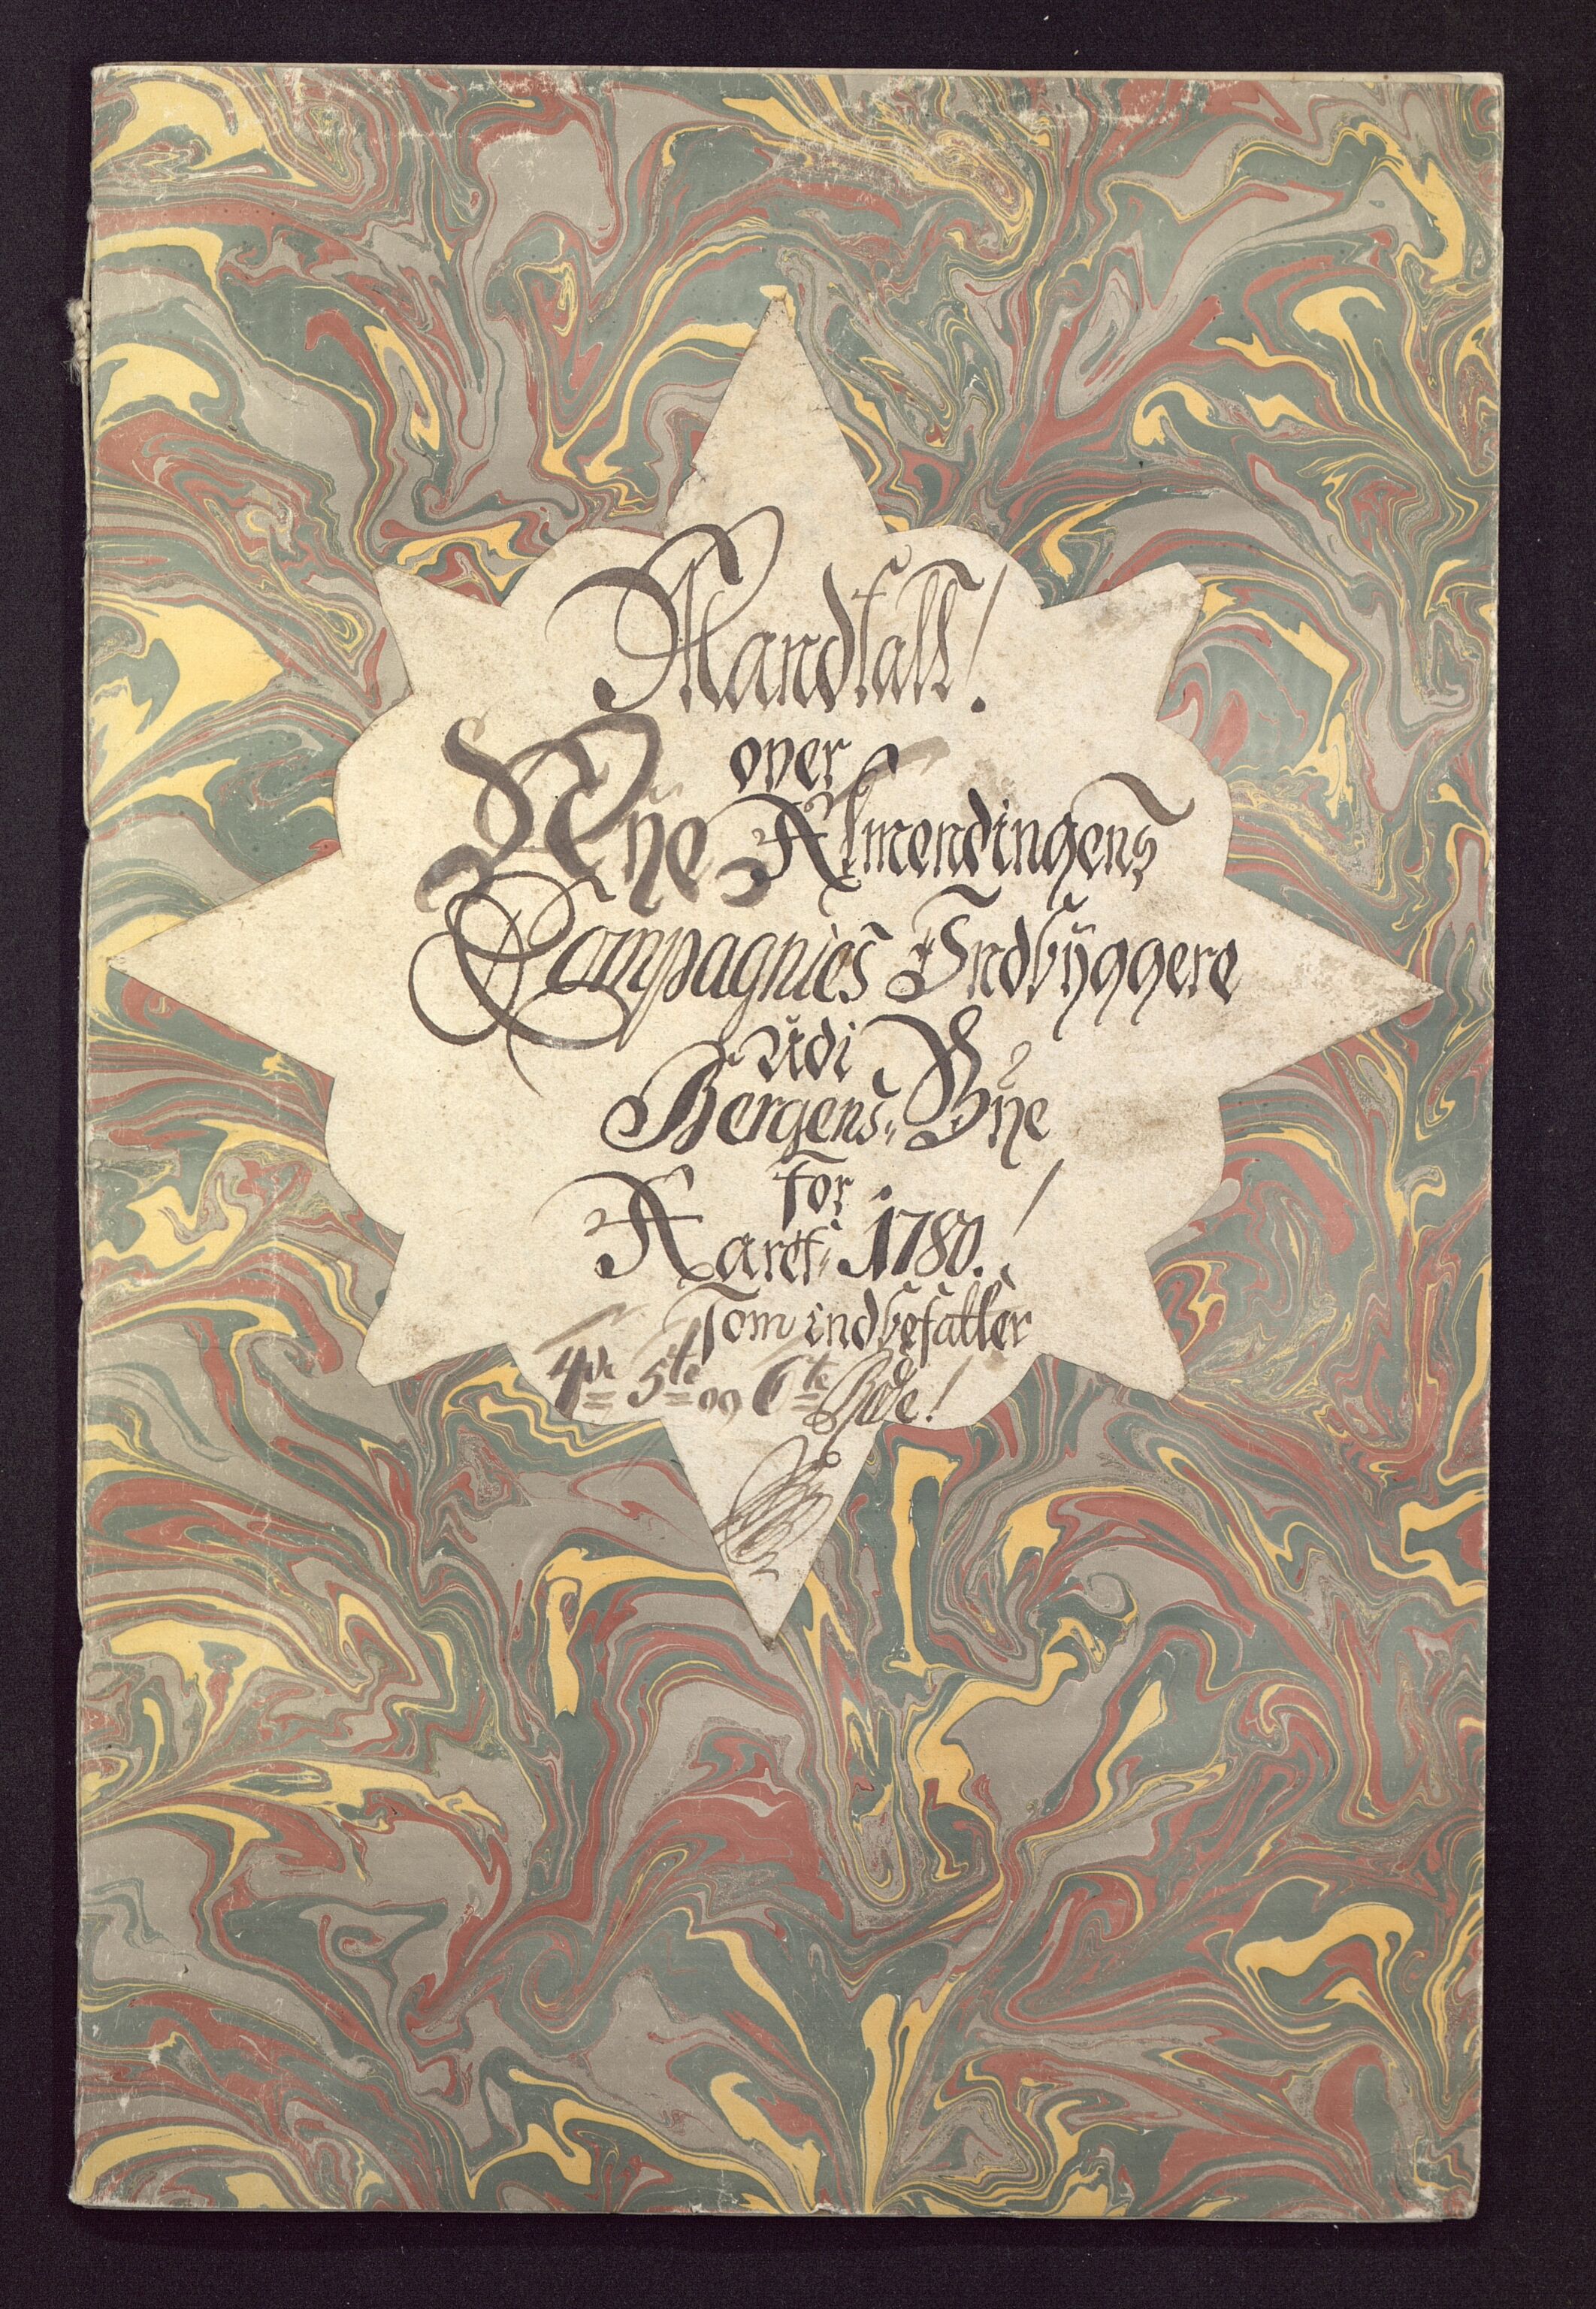 Mandtall!
over
Nÿe Almendingens
Compagnies Indbÿggere
udi
Bergens Bÿe
for
Aaret 1780!
Som indbefatter
4de 5te og 6te Rode!